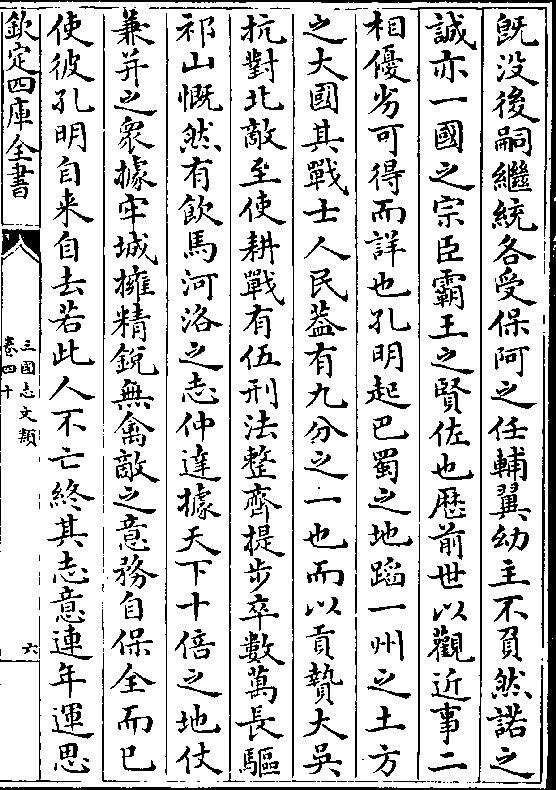 既没後嗣繼統各受保阿之任輔翼幼主不負然諾之
誠亦一國之宗臣霸王之賢佐也歴前世以觀近事二
相優劣可得而詳也孔明起巴蜀之地蹈一州之土方
之大國其戰士人民葢有九分之一也而以貢贄大吳
抗對北敵至使耕戰有伍刑法整齊提步卒數萬長驅
祁山慨然有飲馬河洛之志仲達據天下十倍之地仗
兼并之衆據牢城擁精鋭無禽敵之意務自保全而已
使彼孔明自来自去若此人不亡終其志意連年運思
欽定四庫全書
三國志文類
卷四十
六